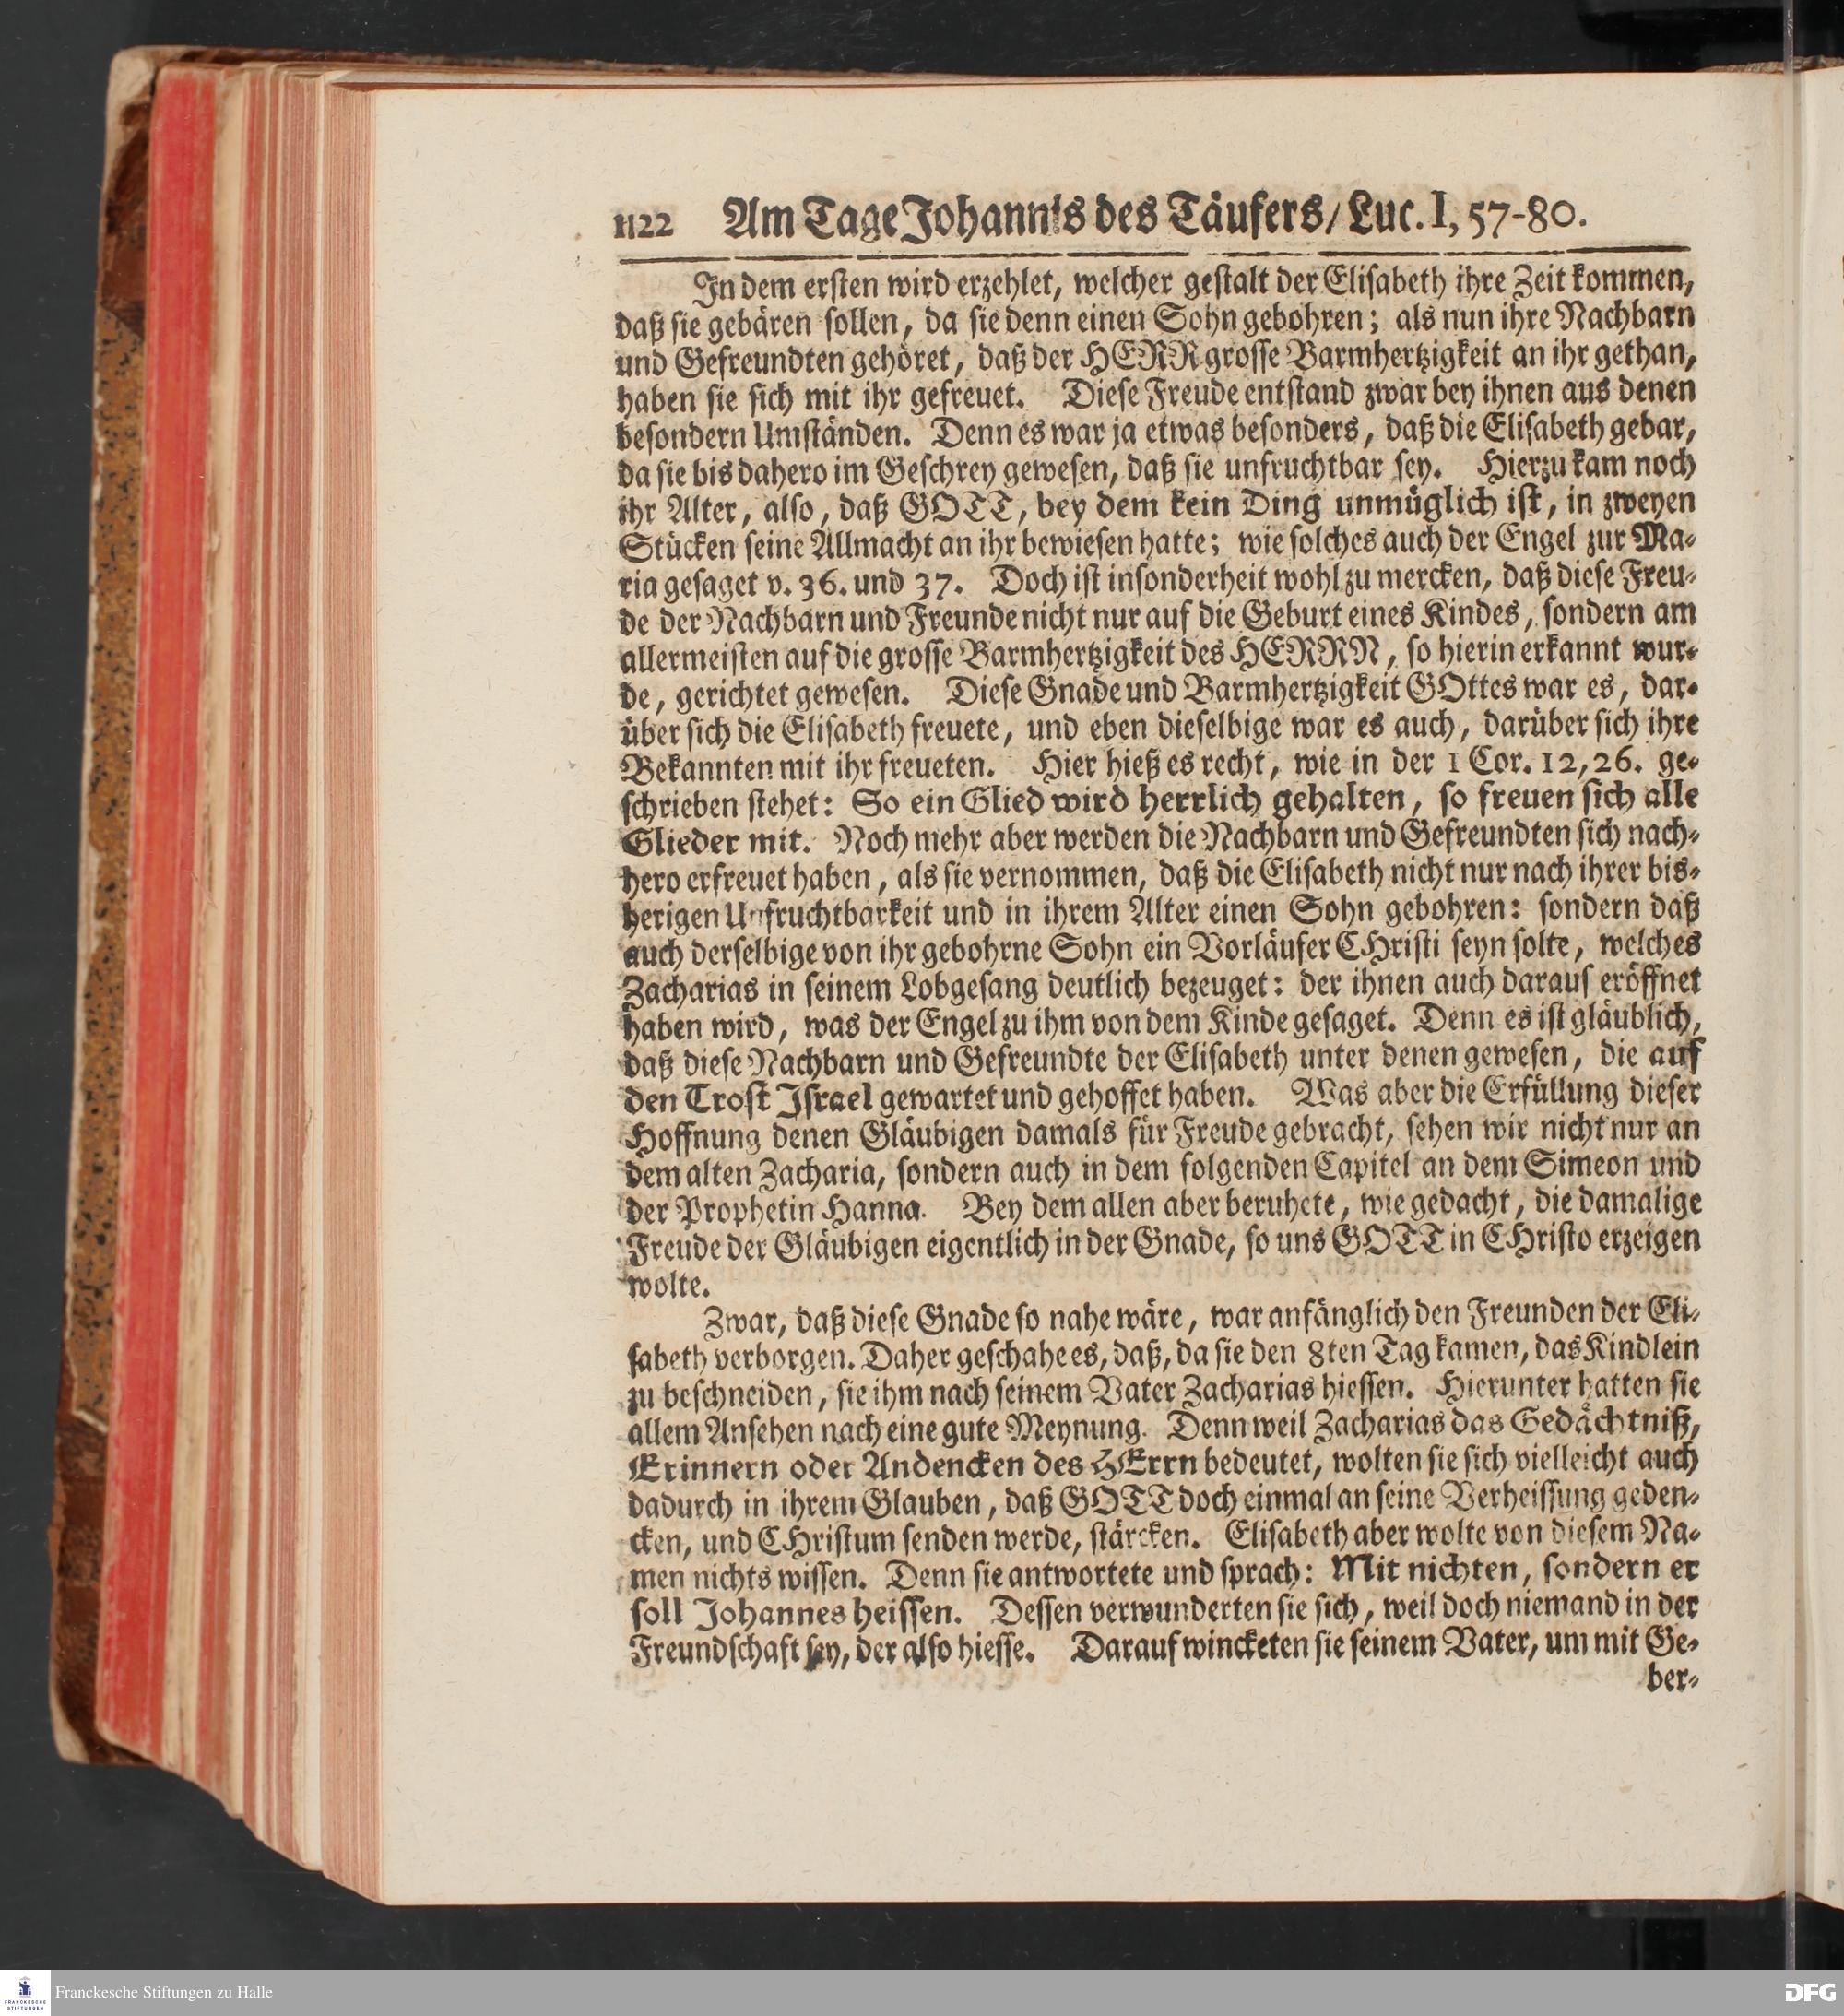 1122 Am Tage Johannis des Täufers/ Luc. I, 57-80.
In dem ersten wird erzehlet, welcher gestalt der Elisabeth ihre Zeit kommen,
daß sie gebären sollen, da sie denn einen Sohn gebohren; als nun ihre Nachbarn
und Gefreundten gehöret, daß der HERR grosse Barmhertzigkeit an ihr gethan,
haben sie sich mit ihr gefreuet. Diese Freude entstand zwar bey ihnen aus denen
besondern Umständen. Denn es war ja etwas besonders, daß die Elisabeth gebar,
da sie bis dahero im Geschrey gewesen, daß sie unfruchtbar sey. Hierzu kam noch
ihr Alter, also, daß GOTT, bey dem kein Ding unmüglich ist, in zweyen
Stücken seine Allmacht an ihr bewiesen hatte; wie solches auch der Engel zur Ma-
ria gesaget v. 36. und 37. Doch ist insonderheit wohl zu mercken, daß diese Freu-
de der Nachbarn und Freunde nicht nur auf die Geburt eines Kindes, sondern am
allermeisten auf die grosse Barmhertzigkeit des HERRN, so hierin erkannt wur-
de, gerichtet gewesen. Diese Gnade und Barmhertzigkeit GOttes war es, dar-
über sich die Elisabeth freuete, und eben dieselbige war es auch, darüber sich ihre
Bekannten mit ihr freueten. Hier hieß es recht, wie in der 1 Cor. 12, 26. ge-
schrieben stehet: So ein Glied wird herrlich gehalten, so freuen sich alle
Glieder mit. Noch mehr aber werden die Nachbarn und Gefreundten sich nach-
hero erfreuet haben, als sie vernommen, daß die Elisabeth nicht nur nach ihrer bis-
herigen Unfruchtbarkeit und in ihrem Alter einen Sohn gebohren: sondern daß
auch derselbige von ihr gebohrne Sohn ein Vorläufer CHristi seyn solte, welches
Zacharias in seinem Lobgesang deutlich bezeuget: der ihnen auch daraus eröffnet
haben wird, was der Engel zu ihm von dem Kinde gesaget. Denn es ist gläublich,
daß diese Nachbarn und Gefreundte der Elisabeth unter denen gewesen, die auf
den Trost Israel gewartet und gehoffet haben. Was aber die Erfüllung dieser
Hoffnung denen Gläubigen damals für Freude gebracht, sehen wir nicht nur an
dem alten Zacharia, sondern auch in dem folgenden Capitel an dem Simeon und
der Prophetin Hanna. Bey dem allen aber beruhete, wie gedacht, die damalige
Freude der Gläubigen eigentlich in der Gnade, so uns GOTT in CHristo erzeigen
wolte.
Zwar, daß diese Gnade so nahe wäre, war anfänglich den Freunden der Eli-
sabeth verborgen. Daher geschahe es, daß, da sie den 8ten Tag kamen, das Kindlein
zu beschneiden, sie ihm nach seinem Vater Zacharias hiessen. Hierunter hatten sie
allem Ansehen nach eine gute Meynung. Denn weil Zacharias das Gedächtniß,
Erinnern oder Andencken des HErrn bedeutet, wolten sie sich vielleicht auch
dadurch in ihrem Glauben, daß GOTT doch einmal an seine Verheissung geden-
cken, und CHristum senden werde, stärcken. Elisabeth aber wolte von diesem Na-
men nichts wissen. Denn sie antwortete und sprach: Mit nichten, sondern er
soll Johannes heissen. Dessen verwunderten sie sich, weil doch niemand in der
Freundschaft sey, der also hiesse. Darauf winckten sie seinem Vater, um mit Ge-
ber-
FRANCKESCHE
STIFTUNGEN
Franckesche Stiftungen zu Halle
DFG